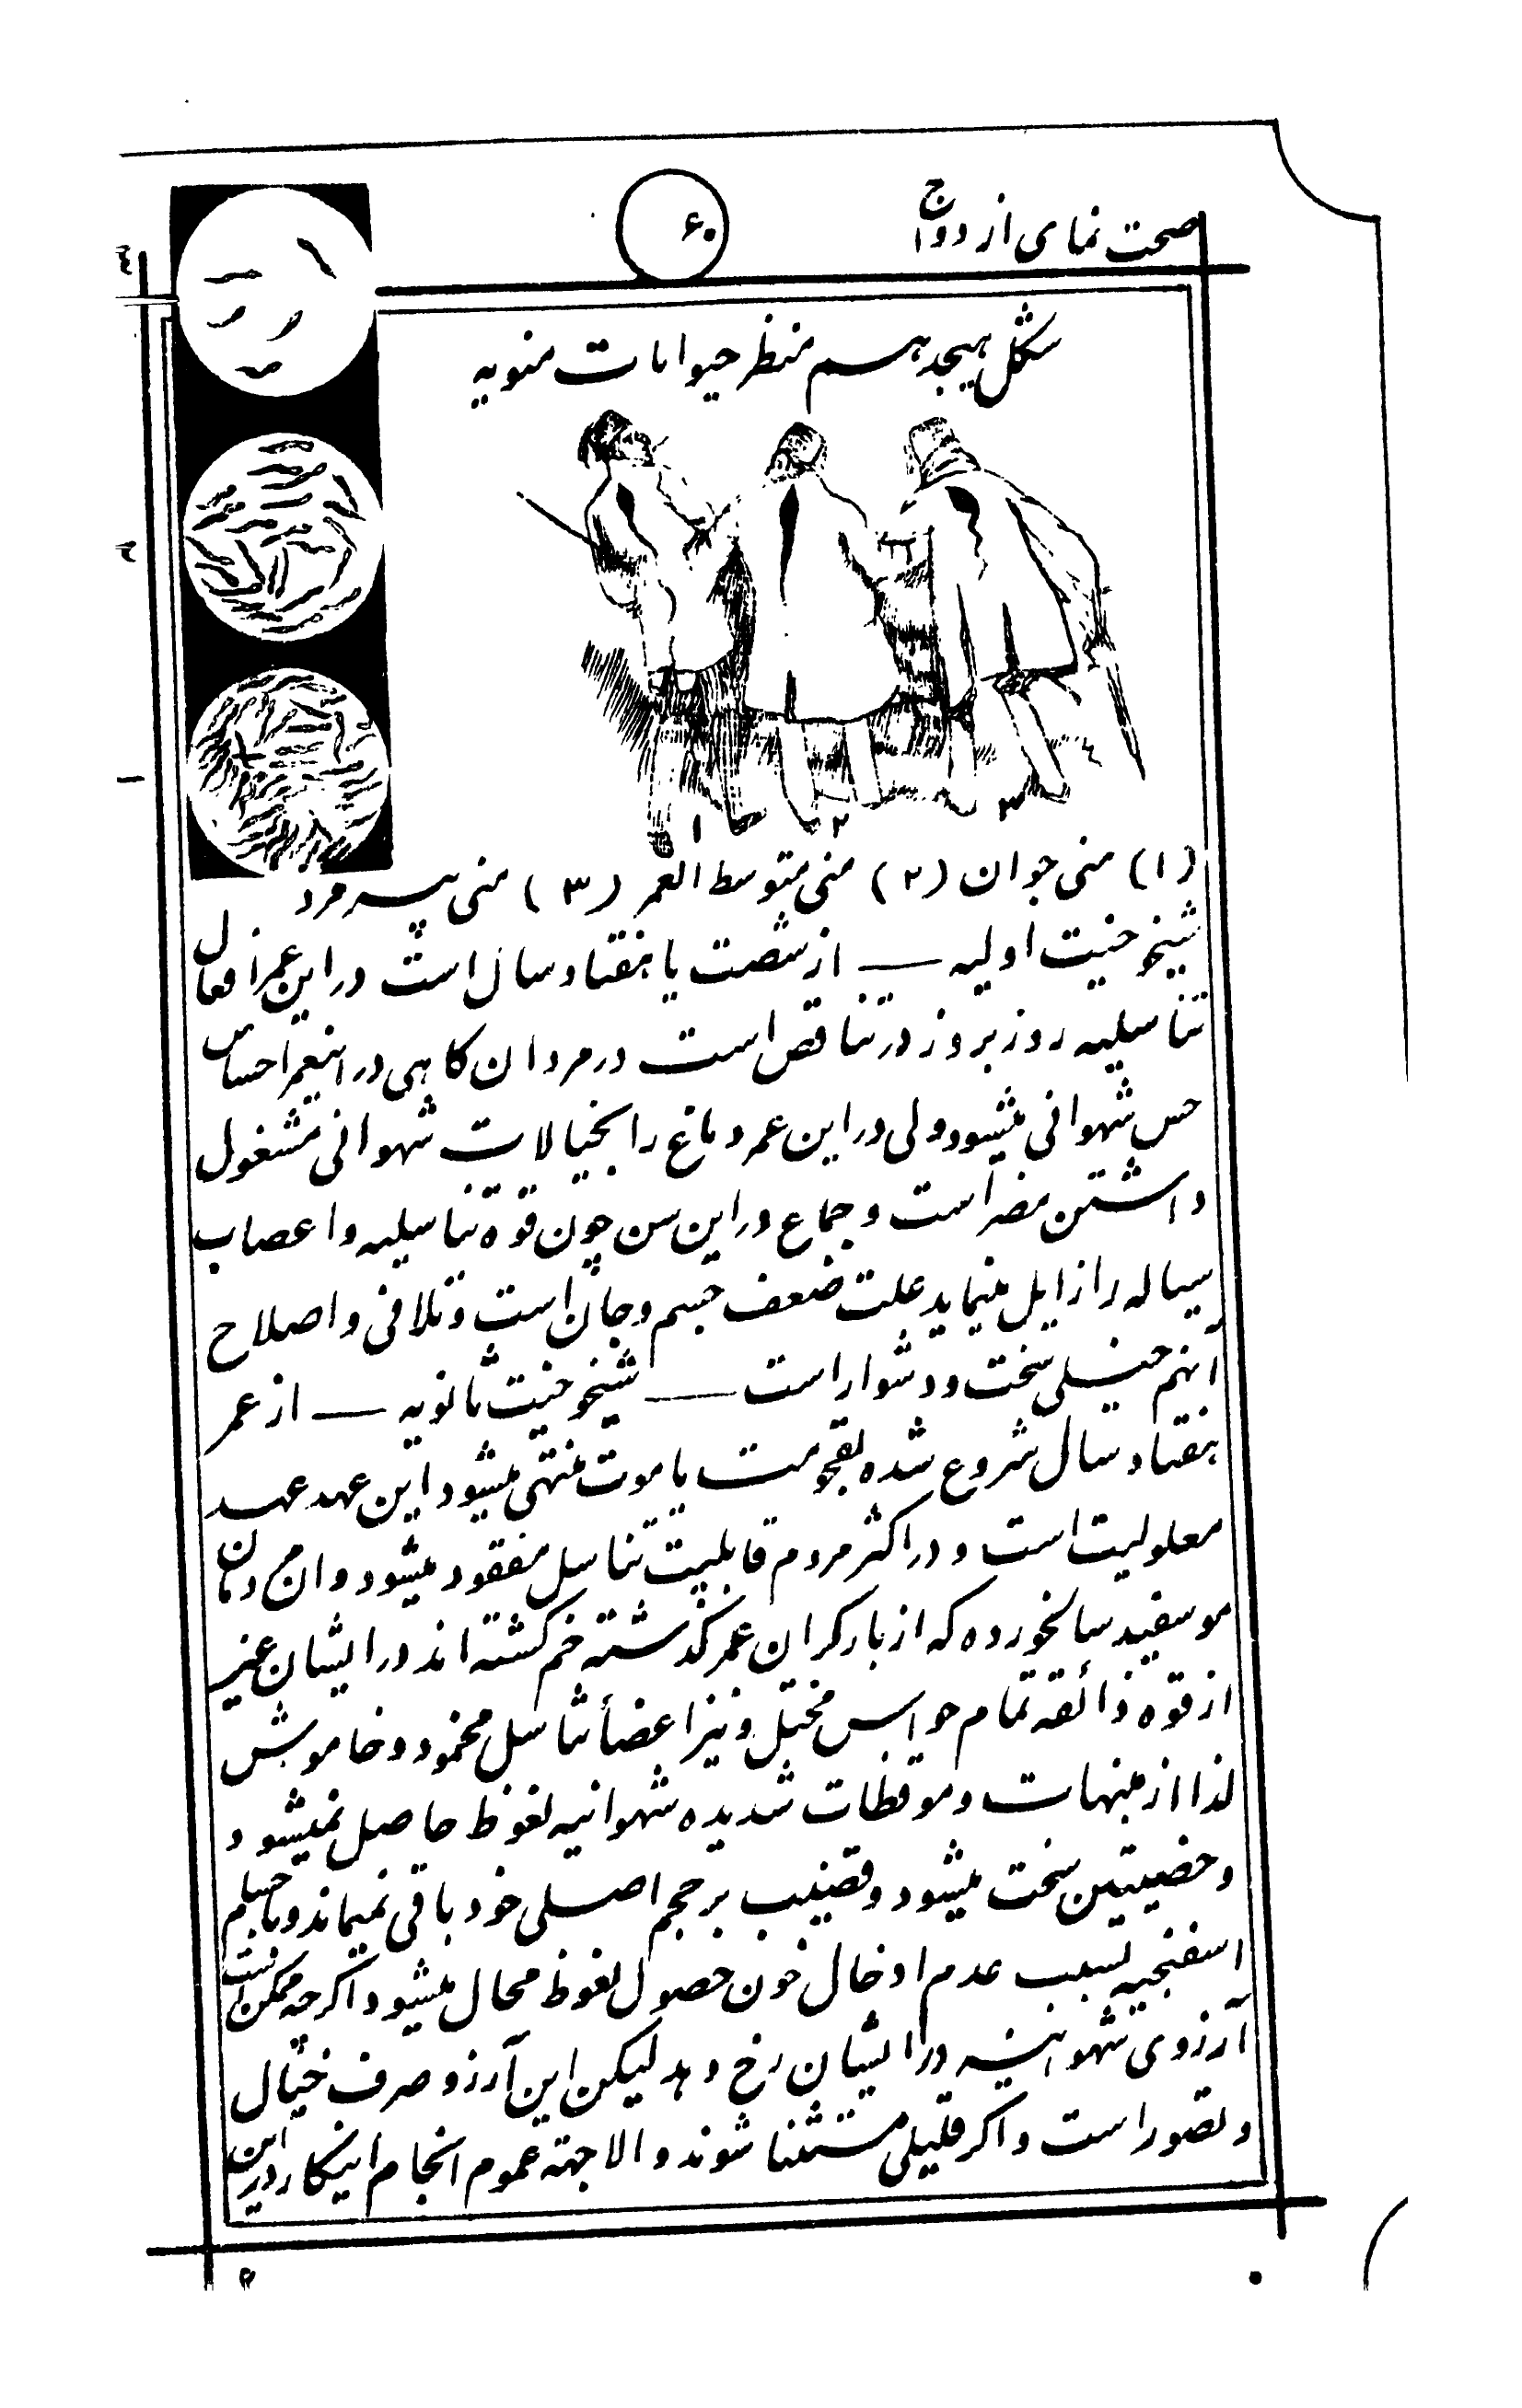 صحت نمای ازدواج
۶۰
شکل هیجدهم منظر حیوانات منویه
۳
۲
۱
۱ ۲ ۳
(۱) منی جوان (۲) منی متوسط العمر (۳) منی پیرمرد
شیخوخیت اولیه — از شصت یا هفتاد سال است در این عمر افعال
تناسلیه روز بروز در تناقص است در مردان کاهی در اینعمر احساس
حس شهوانی میشود ولی در این عمر دماغ را بخیالات شهوانی مشغول
داشتن مضر است و جماع در این سن چون قوه تناسلیه و اعصاب
سیاله را زایل مینماید علت ضعف جسم و جان است و تلافی و اصلاح
آنهم خیلی سخت و دشوار است — شیخوخیت ثانویه — از عمر
هفتاد سال شروع شده یا موت منتهی میشود این عهد عهد
معلولیت است و در اکثر مردم قابلیت تناسل مفقود میشود و ان مردمان
مو سفید سالخورده که از بار کران عمر کذشته خم کشته اند در ایشان غیر
از قوه ذائقه تمام حواس مختل و نیز اعضأ تناسل مخمود و خاموش
لذا از منبهات و موقظات شدیده شهوانیه نغوظ حاصل نمیشود
و خصیتین سخت میشود و قضیب بر حجم اصلی خود باقی نمیماند و با جسلم
اسفنجیه بسبب عدم ادخال خون حصول نغوظ محال میشود اکرچه ممکن است
آرزوی شهوانیه در ایشان رخ دهد لیکن این آرزو صرف خیال
و تصور است و اکر قلیلی مستثنا شوند و الا جهته عموم انجام اینکار در این